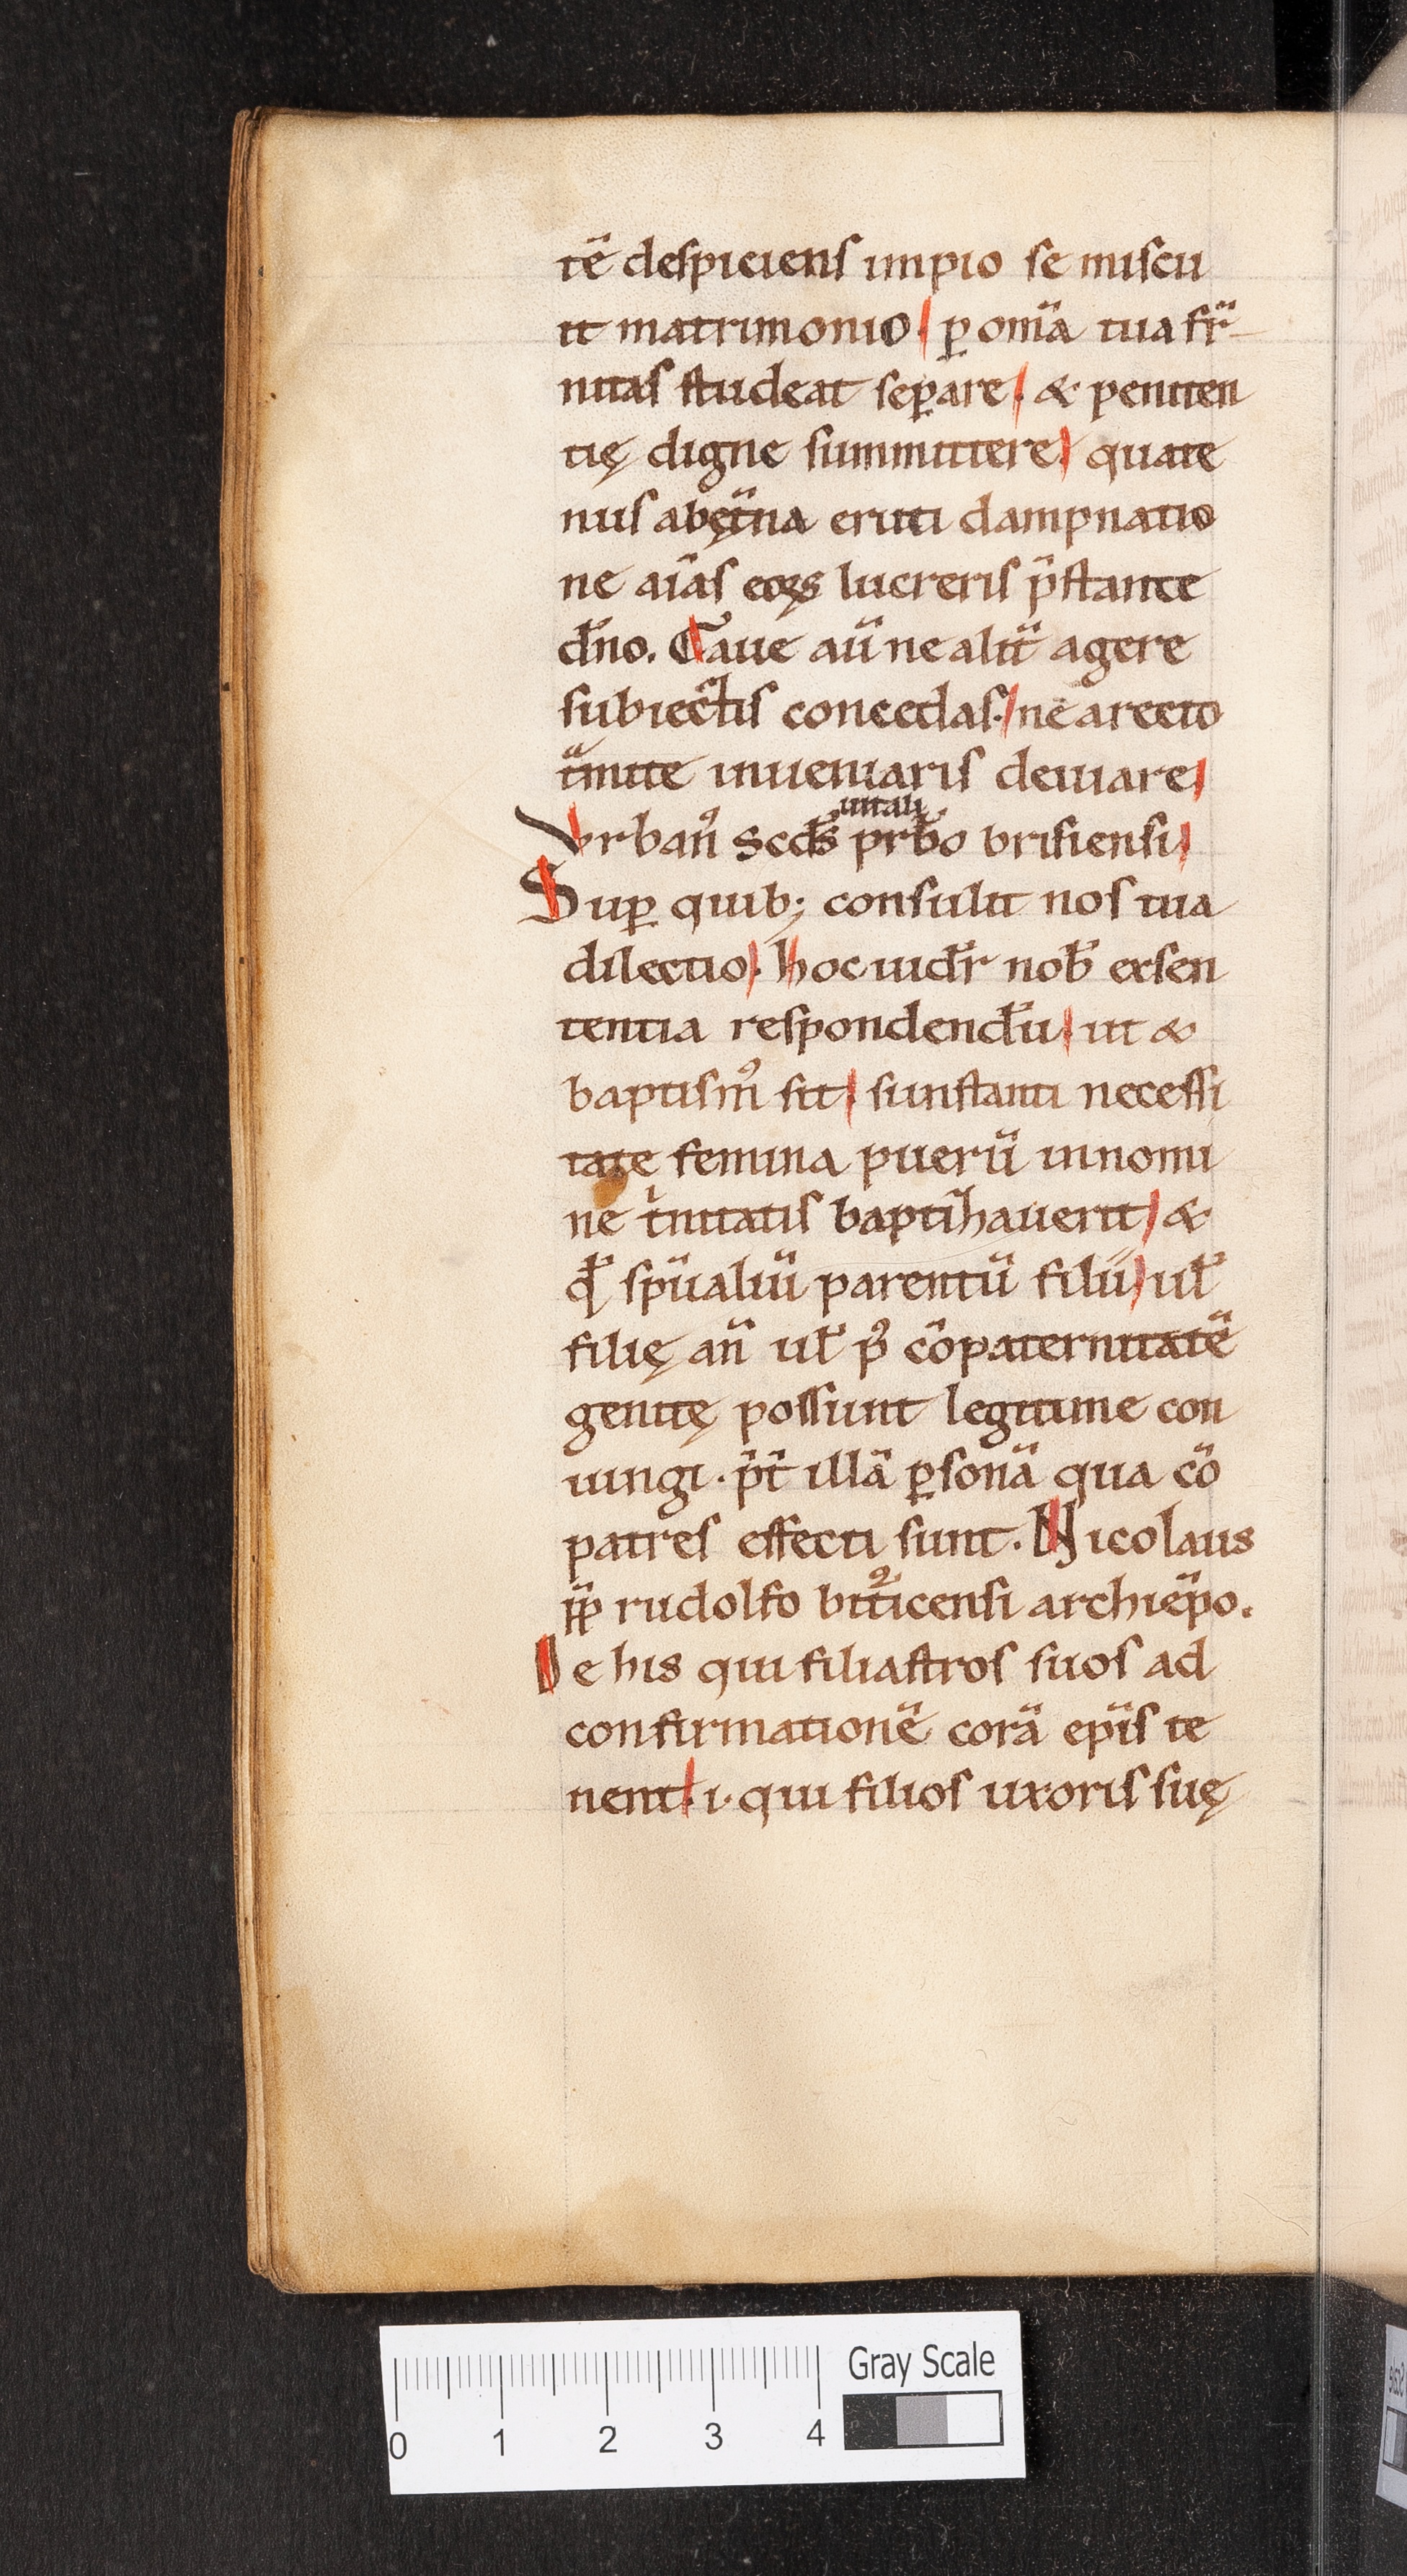 tē despiciens impio se miscu
it matrimonio. ꝑ om̄ia tua fr̄
nitas studeat seꝑare. & peniten
tię digne summittere. quate
nus ab ęt̄na eruti dampnatio
ne aīas eoꝝ lucreris p̄stante
dn̄o. Caue aū ne alit̄ agere
subiectis concedas. ne a recto
tͣmite inueniaris deuiare.
Vrbanꝰ Scd̄s uitali prb̄o brisiensi.
Suꝑ quib; consulit nos tua
dilectio. hoc uidr̄ nob̄ ex sen
tentia respondendū. ut &
baptismꝰ sit. si instanti necessi
tate femina puerū in nomi
ne tͥnitatis baptizauerit. &
qd̄ spūaliū parentū filii. ul̄
filię an̄ ul̄ pꝰ cōpaternitatē
genitę possunt legitime con
iungi. p̄t̄ illā ꝑsonā qua cō
patres effecti sunt. Nicolaus
pp̄ rudolfo bit̄icensi archiep̄o.
De his qui filiastros suos ad
confirmationē corā epīs te
nent. i. qui filios uxoris suę
0 1 2 3 4
Gray Scale